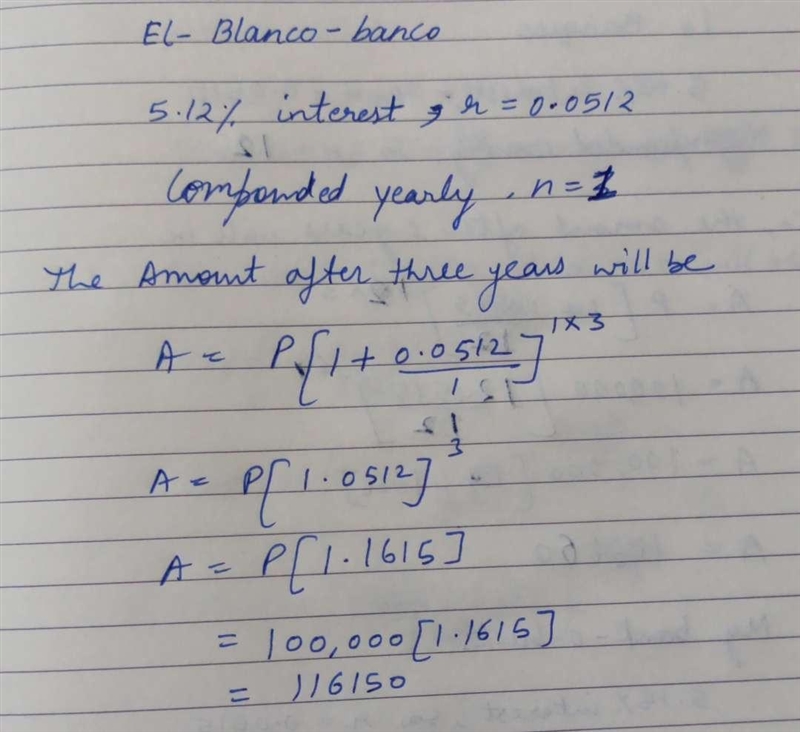 El-Blanco-banco
5.12% interest, r = 0.0512
Componded yearly, n = 1
The Amount after three years will be
A = P[1 + 0.0512/1]^1×3
A = P[1.0512]^3
A = P[1.1615]
= 100,000[1.1615]
= 116150